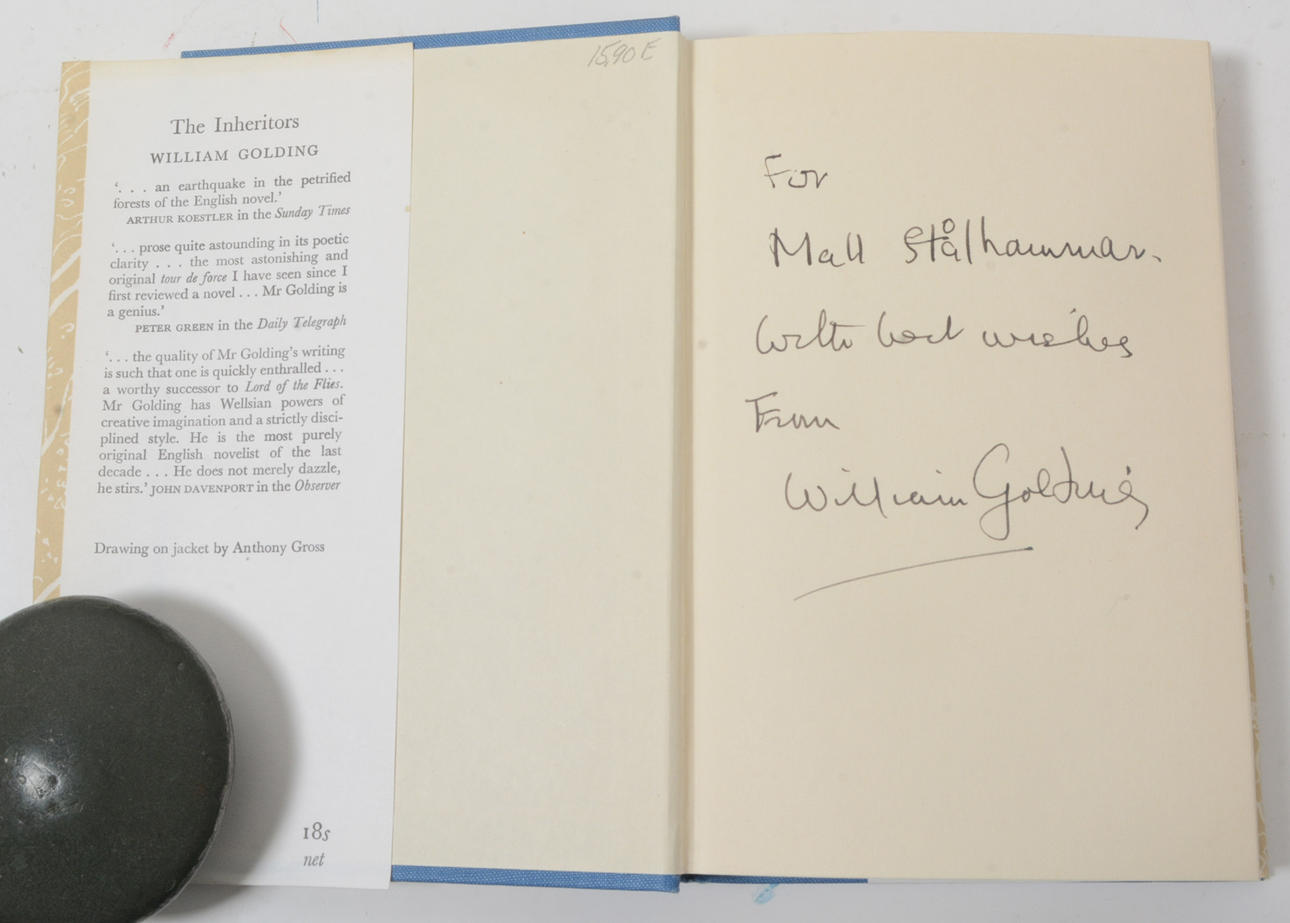 The Inheritors
WILLIAM GOLDING
‘. . . an earthquake in the petrified
forests of the English novel.’
ARTHUR KOESTLER in the Sunday Times
‘. . . prose quite astounding in its poetic
clarity . . . the most astonishing and
original tour de force I have seen since I
first reviewed a novel . . . Mr Golding is
a genius.’
PETER GREEN in the Daily Telegraph
‘. . . the quality of Mr Golding’s writing
is such that one is quickly enthralled . . .
a worthy successor to Lord of the Flies.
Mr Golding has Wellsian powers of
creative imagination and a strictly disci-
plined style. He is the most purely
original English novelist of the last
decade . . . He does not merely dazzle,
he stirs.’ JOHN DAVENPORT in the Observer
Drawing on jacket by Anthony Gross
18s
net
15,90 E
For
Mall Stålhammar.
With best wishes
From
William Golding